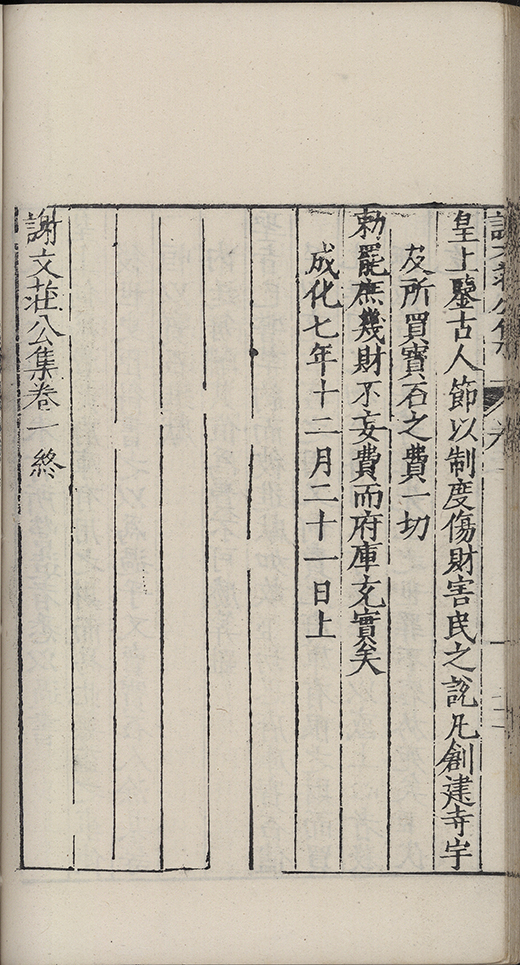 謝文莊公集
皇上鑒古人節以制度傷財害民之說凡創建寺宇
及所買寶石之費一切
勅罷庶幾財不妄費而府庫充實矣
成化七年十二月二十一日上
謝文莊公集卷一終